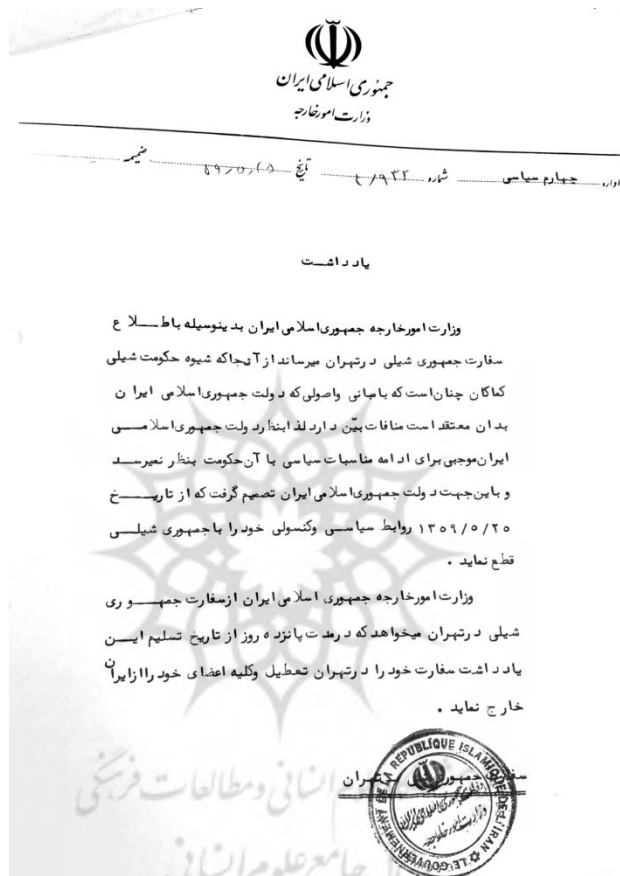 جمهوری اسلامی ایران
وزارت امور خارجه
اداره چهارم سیاسی شماره ۹۳۲/ تاریخ ۵۹/۵/۲۵ ضمیمه
یادداشت
وزارت امورخارجه جمهوری اسلامی ایران بدینوسیله باطلاع
سفارت جمهوری شیلی درتهران میرساند ازآنجاکه شیوه حکومت شیلی
کماکان چنان است که بامبانی واصولی که دولت جمهوری اسلامی ایران
بدان معتقد است منافات بیّن دارد لذا بنظر دولت جمهوری اسلامی
ایران موجبی برای ادامه مناسبات سیاسی با آن حکومت بنظر نمیرسد
و باین جهت دولت جمهوری اسلامی ایران تصمیم گرفت که از تاریخ
۱۳۵۹/۵/۲۵ روابط سیاسی وکنسولی خود را با جمهوری شیلی
قطع نماید .
وزارت امورخارجه جمهوری اسلامی ایران ازسفارت جمهوری
شیلی درتهران میخواهد که درمدت پانزده روز از تاریخ تسلیم این
یادداشت سفارت خود را درتهران تعطیل وکلیه اعضای خود را ازایران
خارج نماید .
سفارت جمهوری تهران
LE GOUVERNEMENT DE LA REPUBLIQUE ISLAMIQUE DE L'IRAN
وزارت امور خارجه
انسانی ومطالعات فرهنگی
جامع علوم انسانی